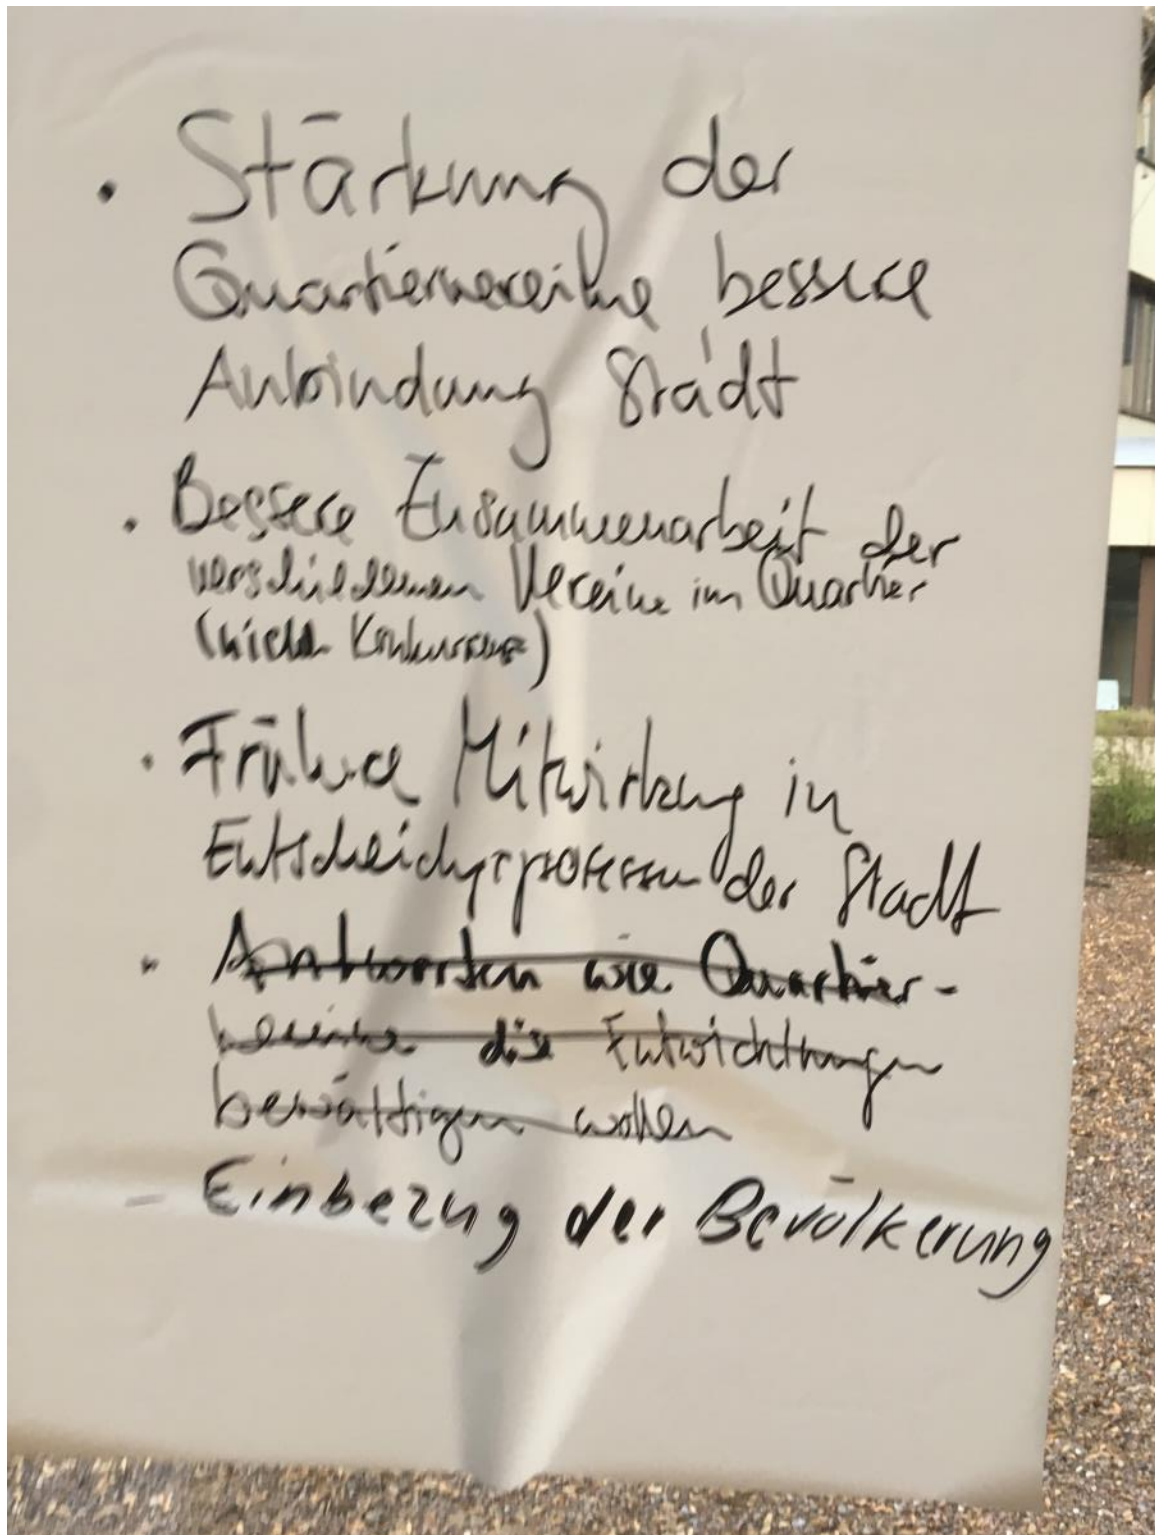 · Stärkung der
Quartiervereine bessere
Anbindung Stadt
· Bessere Zusammenarbeit der
verschiedenen Vereine im Quartier
(nicht Konkurrenz)
· Frühere Mitwirkung in
Entscheidungsprozessen der Stadt
· Antworten wie Quartier-
vereine die Entwicklungen
bewältigen wollen
- Einbezug der Bevölkerung